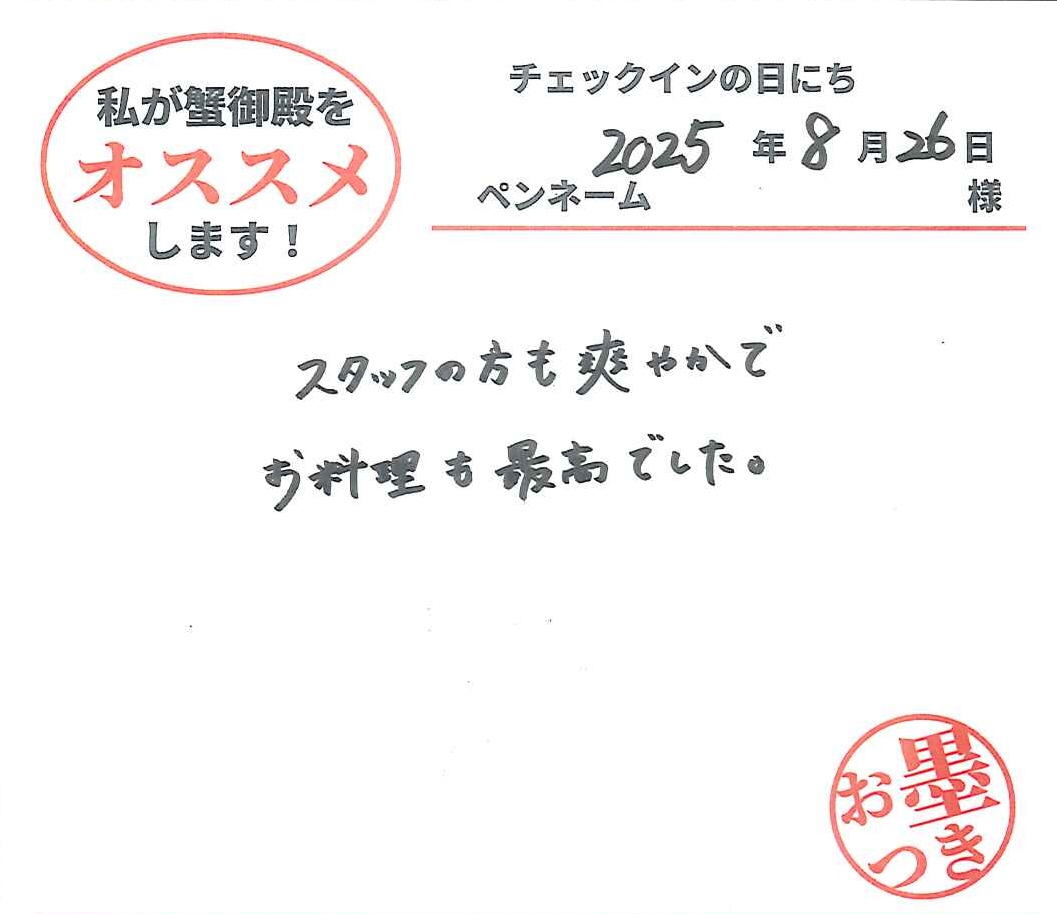 私が蟹御殿を
オススメ
します！
チェックインの日にち
2025年8月26日
ペンネーム 様
スタッフの方も爽やかで
お料理も最高でした。
お墨
つき